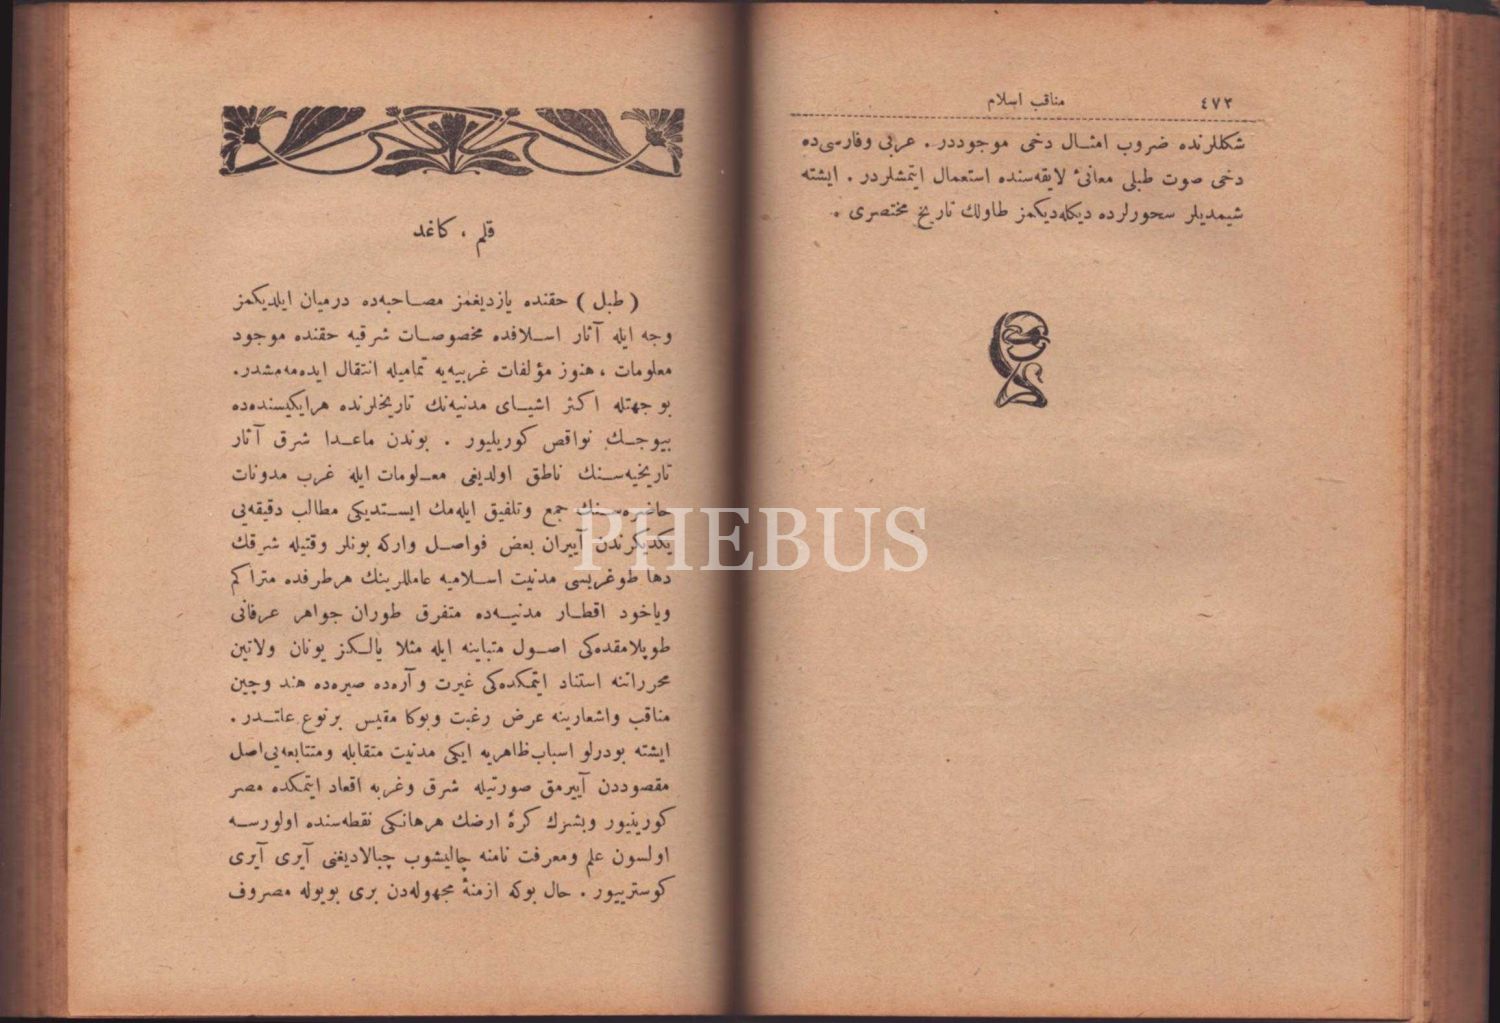 ٤٧٢ مناقب اسلام
شكللرنده ضروب امثـال دخى موجوددر . عربى وفارسى‌ده
دخى صوت طبلى معانئ لايقه‌سنده استعمال ايتمشلردر . ايشته
شيمديلر سحورلرده ديكله‌ديكمز طاولك تاريخ مختصرى .
قلم ، كاغد
( طبل ) حقنده يازديغمز مصـاحبه‌ده درميان ايلديكمز
وجه ايله آثار اسـلافده مخصوصـات شرقيه حقنده موجود
معلومات ، هنوز مؤلفات غربيه‌يه تماميله انتقال ايده‌مه‌مشدر.
بوجهتله اكثر اشيـاى مدنيه‌نك تاريخلرنده هرايكيسنده‌ده
بيوجـك نواقص كوريليور . بوندن ماعـدا شرق آثار
تاريخيه‌سـنك ناطق اولديغى معـلومات ايله غرب مدونات
حاضره‌سـنك جمع وتلفيق ايله‌مك ايسـتديكى مطالب دقيقه‌يى
يكديكرندن آييران بعض فواصل واركه بونلر وقتيله شرقك
دها طوغريسى مدنيت اسـلاميه عاملرينك هرطرفده متراكم
وياخود اقطـار مدنيـه‌ده متفرق طوران جواهر عرفانى
طوپلامقده‌كى اصـول متباينه ايله مثلا يالـكز يونان ولاتين
محرراتنه استناد ايتمكده‌كى غيرت وآره‌ده صيره‌ده هند وچين
مناقب واشعارينه عرض رغبت وبوكا مقيس برنوع علتـدر .
ايشته بودرلو اسباب ظاهريه ايكى مدنيت متقابله ومتتابعه‌يى اصل
مقصوددن آييرمق صورتيله شرق وغربه اقعاد ايتمكده مصر
كورينيور وبشرك كرۀ ارضك هرهانكى نقطه‌سنده اولورسـه
اولسون علم ومعرفت نامنه چاليشوب چبالاديغنى آيرى آيرى
كوسترييور . حال بوكه ازمنۀ مجهوله‌دن برى بويوله مصروف
PHEBUS